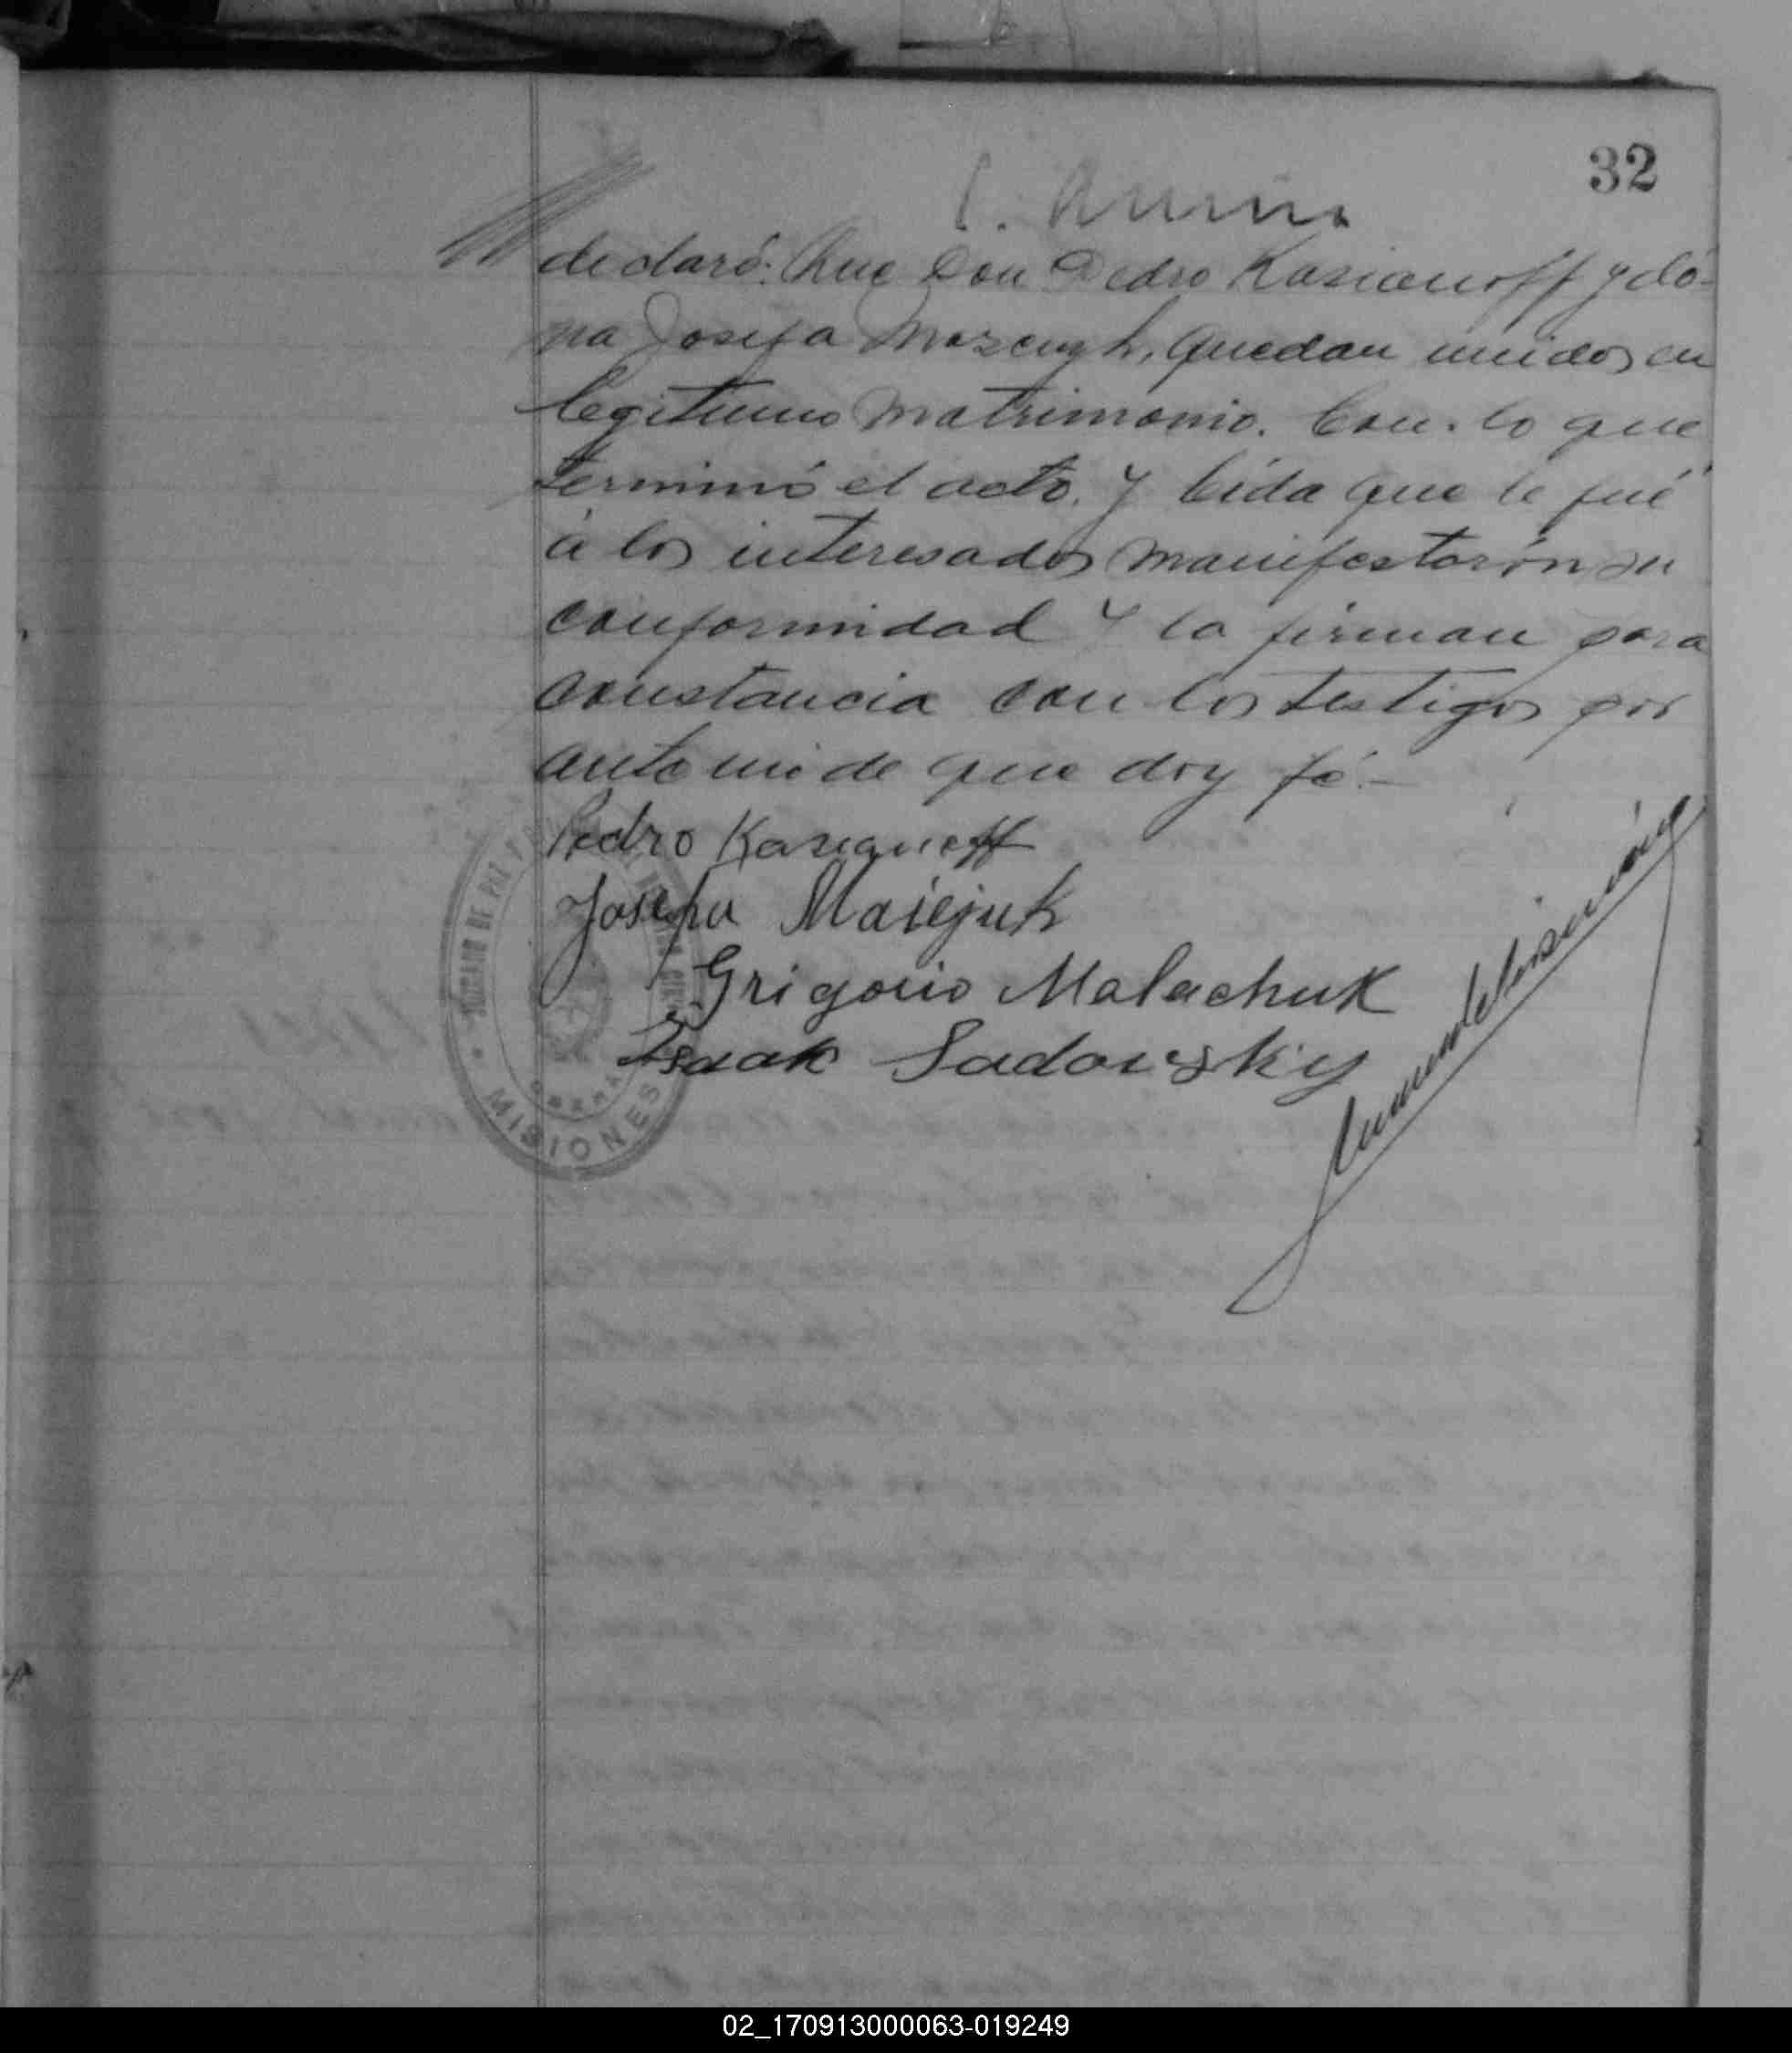 32
declaró: Que Don Pedro Kasianoff y dó-
ña Josefa quedan unidos en
legitimo matrimonio. Con lo que
terminó el acto. Y leida que le fué
á los interesados manifestarón su
conformidad y la firman para
constancia con los testigos por
ante mi de que doy fé.-
Pedro Kasianoff
Josepha Maiejuk
Grigorio Malachuk
Isaak Sadowsky
JUZGADO DE PAZ
MISIONES
02_170913000063-019249